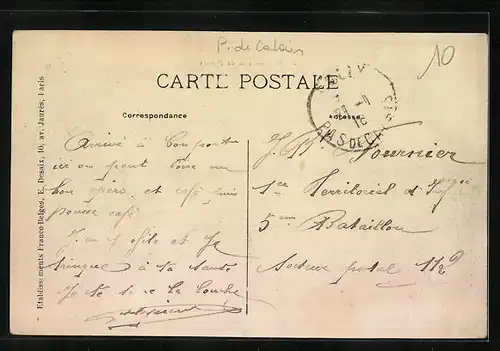 P. de Calais
10
CARTE POSTALE
PAS DE CALAIS
Correspondance
Adresse
Etablissements France-Belges, E. Desaix, 10, av. Jaurès, Paris
Arrivé à bon port
ici on peut boire un
bon apéro et café puis
pousse café
J'en profite et Je
trinque à ta santé
Je te serre la louche
J. Bte Fournier
1er Territorial d'Infie
5ème Bataillon
Secteur postal 112